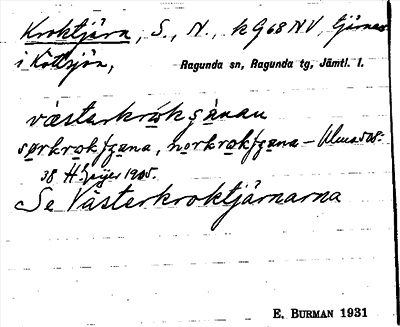 Kroktjärn, S., N., kg 68 NV, tjärnar
i Köttsjön,
Ragunda sn, Ragunda tg, Jämtl. l.
västerkrokgänan
sørkrokʃgana, norkrokʃgana – Ulmas 508:
38 H Geijer 1905.
Se Västerkroktjärnarna
E. BURMAN 1931